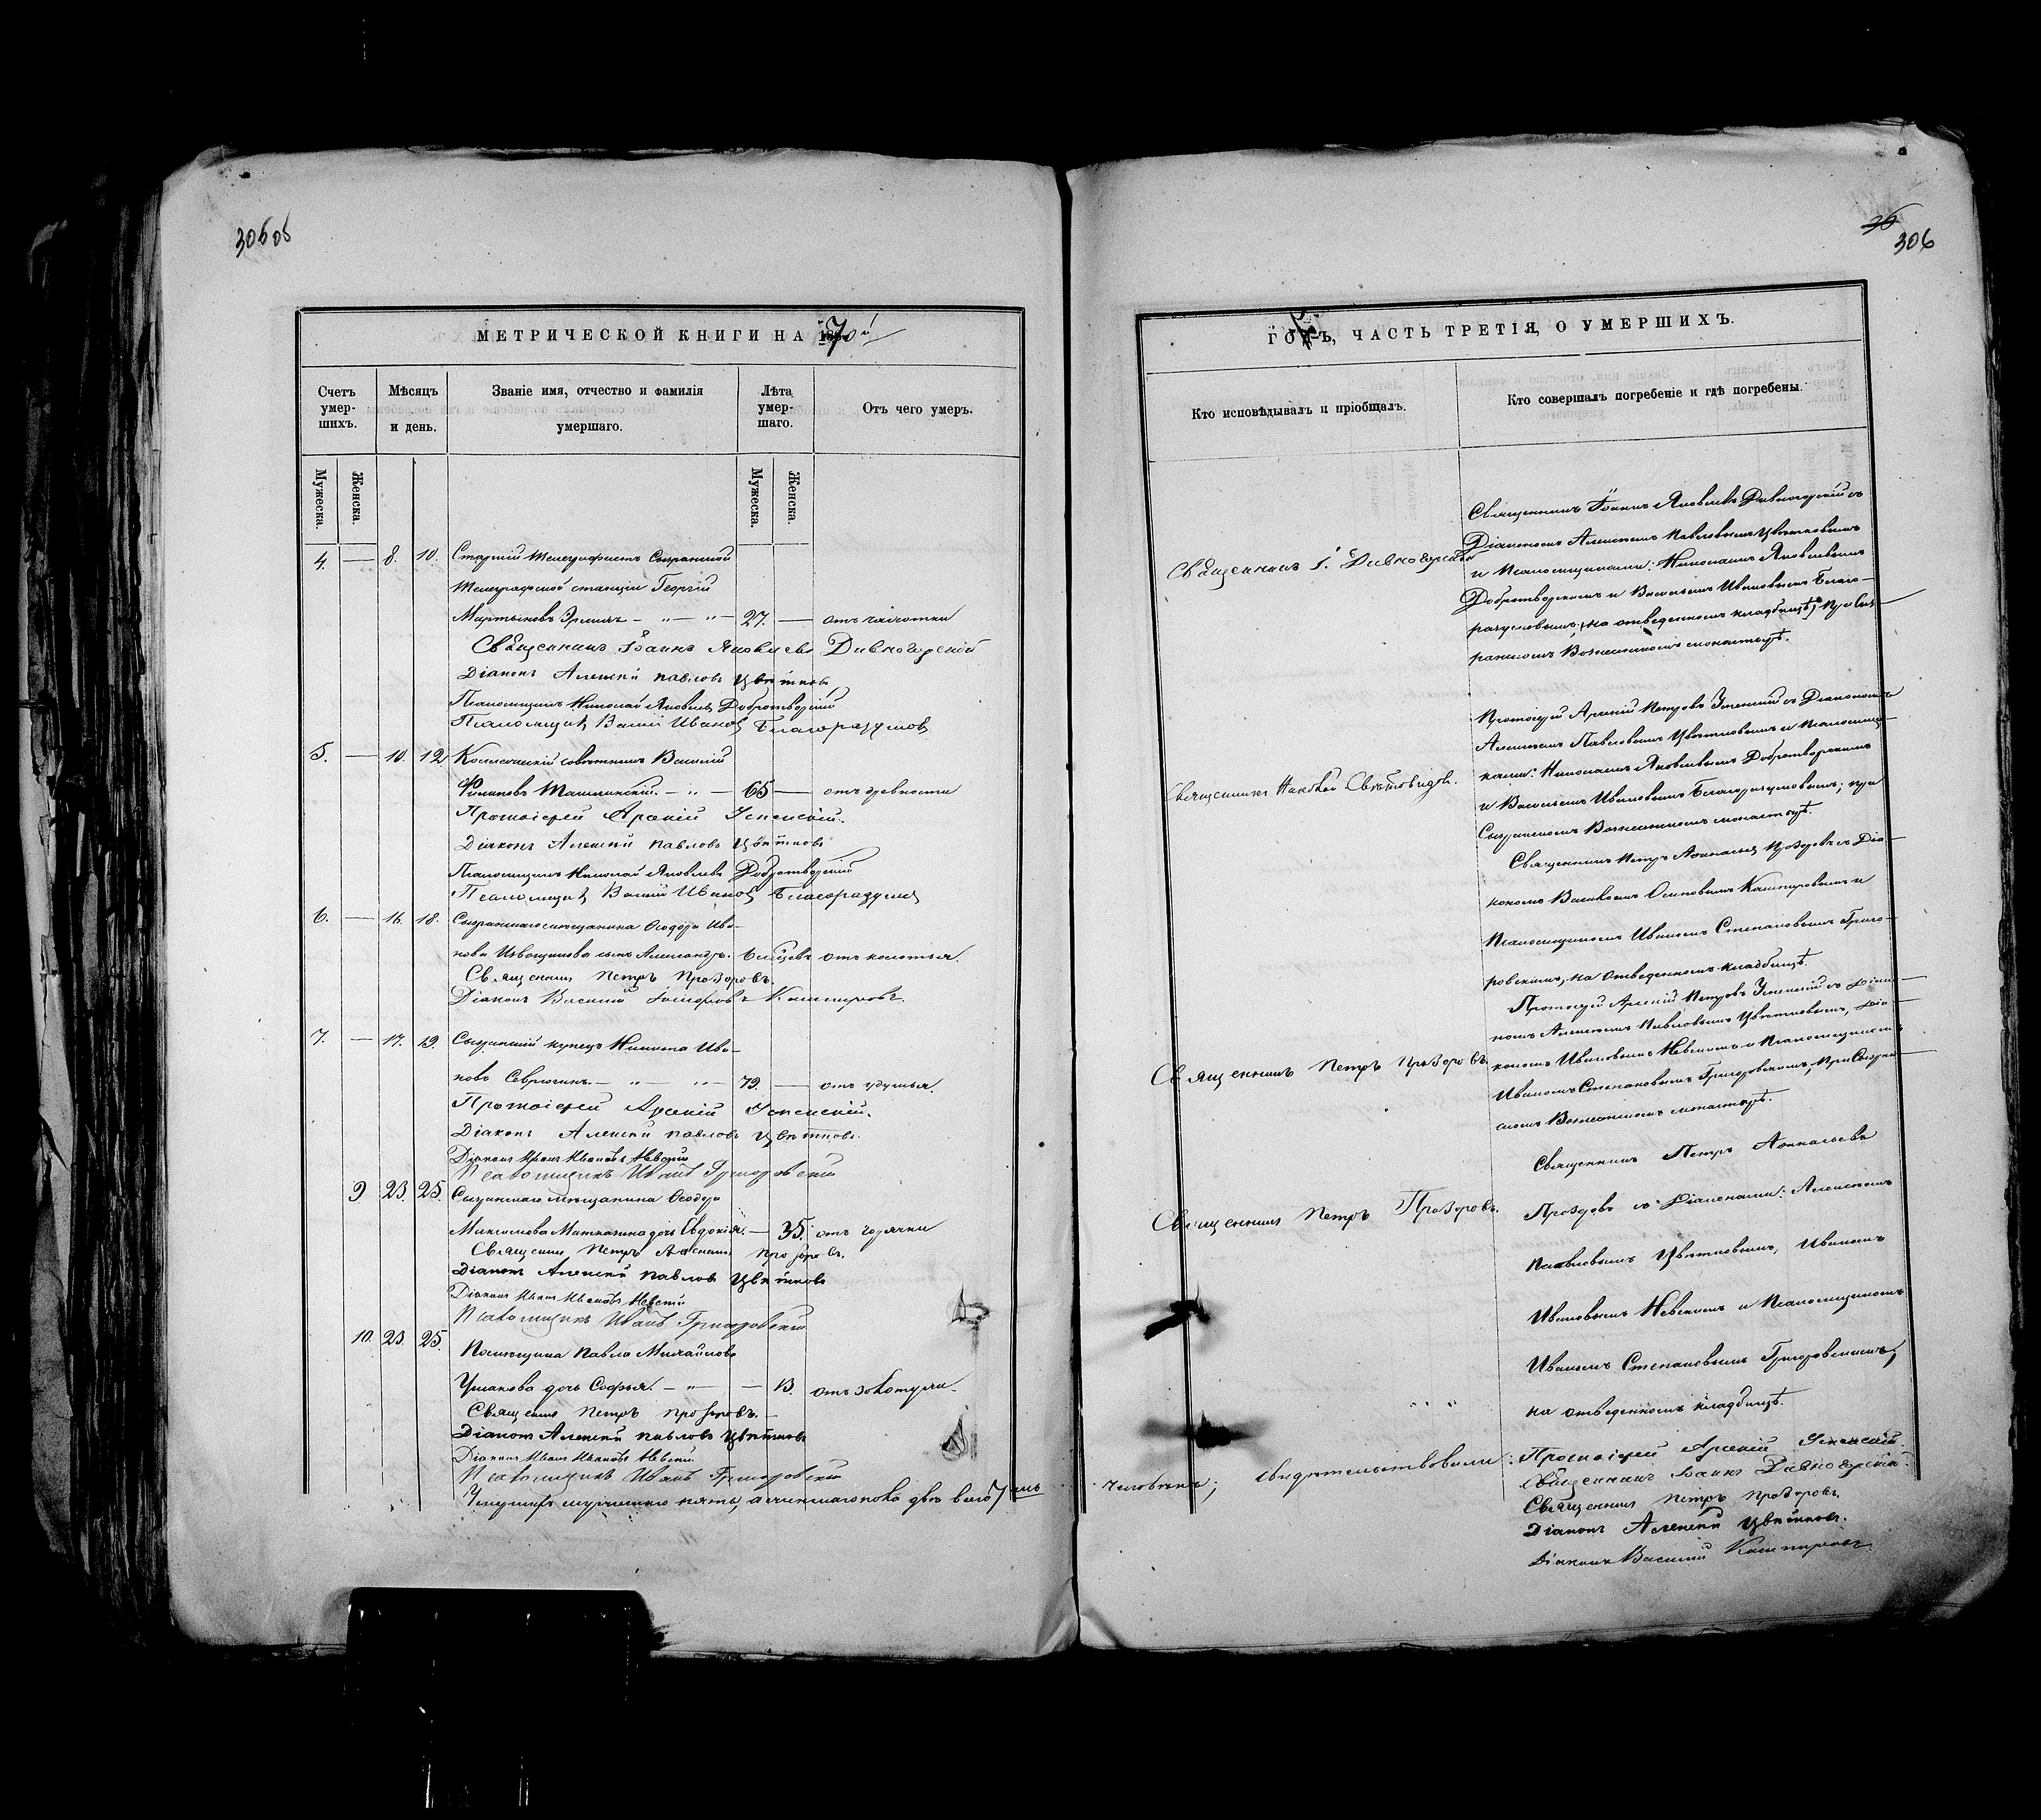 306 об
МЕТРИЧЕСКОЙ КНИГИ НА 1870й
Счетъ умер-шихъ.
Мѣсяцъ и день.
Званіе имя, отчество и фамилія умершаго.
Лѣта умер-шаго.
Отъ чего умеръ.
Мужеска. Женска.
Мужеска. Женска.
4. — 8. 10. Старшій Телеграфистъ Сызранской
Телеграфской станціи Георгій
Мартыновъ — " — " — 27. — отъ чахотки
Священникъ Іоаннъ Яковлевъ Дивногорскій
Діаконъ Алексѣй Павловъ Цвѣтковъ
Псаломщикъ Николай Яковлевъ Добротворскій
Псаломщикъ Василій Ивановъ Благоразумовъ
5. — 10. 12 Коллежскій совѣтникъ Василій
Филиповъ — " — 65 — отъ древности
Протоіерей Арсеній Успенскій.
Діаконъ Алексѣй Павловъ Цвѣтковъ
Псаломщикъ Николай Яковлевъ Добротворскій
Псаломщикъ Василій Ивановъ Благоразумовъ
6. — 16. 18. Сызранскаго мѣщанина Ѳеодора Ива-
нова Извощикова сынъ Александръ. отъ колотья.
Священникъ Петръ Прозоровъ.
Діаконъ Василій Кашпировъ.
7. — 17. 19. Сызранскій купецъ Никита Ива-
новъ Севрюгинъ. — " — " — 79. — отъ удушья.
Протоіерей Арсеній Успенскій.
Діаконъ Алексѣй Павловъ Цвѣтковъ.
Діаконъ Иванъ Ивановъ Невскій
Псаломщикъ Иванъ Григоровскій
9 23. 25. Сызранскаго мѣщанина Ѳеодора
Максимова дочь Евдокія. — 35. отъ горячки
Священникъ Петръ Прозоровъ.
Діаконъ Алексѣй Павловъ Цвѣтковъ
Діаконъ Иванъ Ивановъ Невскій
Псаломщикъ Иванъ Григоровскій
10. 23. 25. Помѣщика Павла Михайлова
Ушакова дочь Софья. — " — — 13. отъ золотухи.
Священникъ Петръ Прозоровъ.
Діаконъ Алексѣй Павловъ Цвѣтковъ
Діаконъ Иванъ Ивановъ Невскій
Псаломщикъ Иванъ Григоровскій
мужескаго пять, а женскаго пола двѣ всего 7мь
36
306
ГОДЪ, ЧАСТЬ ТРЕТІЯ, О УМЕРШИХЪ.
Кто исповѣдывалъ и пріобщалъ.
Кто совершалъ погребеніе и гдѣ погребены.
Священникъ І. Дивногорскій
Священникъ Іоаннъ Яковлевъ Дивногорскій съ
Діакономъ Алексѣемъ Павловымъ Цвѣтковымъ
и Псаломщиками: Николаемъ Яковлевымъ
Добротворскимъ и Василіемъ Ивановымъ Благо-
разумовымъ; на отведенномъ кладбищѣ, при Сыз-
ранскомъ Вознесенскомъ монастырѣ.
Священникъ Николай Свѣтовидовъ.
Протоіерей Арсеній Петровъ Успенскій съ Діакономъ
Алексѣемъ Павловымъ Цвѣтковымъ и Псаломщи-
ками: Николаемъ Яковлевымъ Добротворскимъ
и Василіемъ Ивановымъ Благоразумовымъ; при
Сызранскомъ Вознесенскомъ монастырѣ.
Священникъ Петръ Аѳанасьевъ Прозоровъ съ Діа-
кономъ Василіемъ Осиповымъ Кашпировымъ и
Псаломщикомъ Иваномъ Степановымъ Григо-
ровскимъ, на отведенномъ кладбищѣ.
Священникъ Петръ Прозоровъ.
Протоіерей Арсеній Петровъ Успенскій съ Діако-
номъ Алексѣемъ Павловымъ Цвѣтковымъ, Діа-
кономъ Ивановымъ Невскимъ и Псаломщикомъ
Иваномъ Степановымъ Григоровскимъ, при Сызран-
скомъ Вознесенскомъ монастырѣ.
Священникъ Петръ Прозоровъ.
Священникъ Петръ Аѳанасьевъ
Прозоровъ съ Діаконами: Алексѣемъ
Павловымъ Цвѣтковымъ, Иваномъ
Ивановымъ Невскимъ и Псаломщикомъ
Иваномъ Степановымъ Григоровскимъ,
на отведенномъ кладбищѣ.
человѣкъ; свидѣтельствовали: Протоіерей Арсеній Успенскій.
Священникъ Іоаннъ Дивногорскій.
Священникъ Петръ Прозоровъ.
Діаконъ Алексѣй Цвѣтковъ.
Діаконъ Василій Кашпировъ.